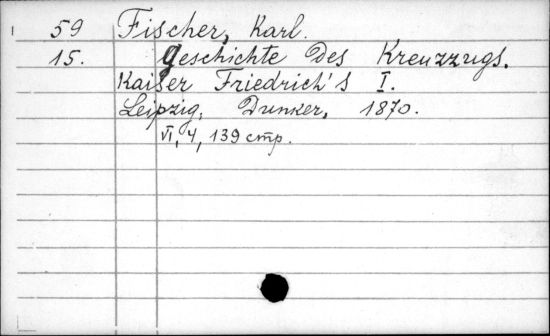 59 Fischer, Karl.
15. Geschichte Des Kreuzzugs.
Kaiser Friedrich's I.
Leipzig, Dunker, 1870.
VI, 4, 139 стр.